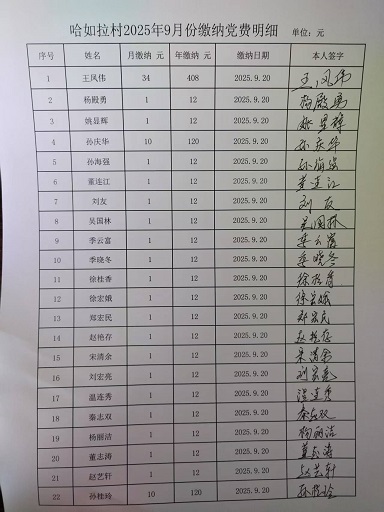 哈如拉村2025年9月份缴纳党费明细 单位：元
序号 姓名 月缴纳 元 年缴纳 元 缴纳日期 本人签字
1 王凤伟 34 408 2025.9.20 王凤伟
2 杨殿勇 1 12 2025.9.20 杨殿勇
3 姚显辉 1 12 2025.9.20 姚显辉
4 孙庆华 10 120 2025.9.20 孙庆华
5 孙海强 1 12 2025.9.20 孙海强
6 董连江 1 12 2025.9.20 董连江
7 刘友 1 12 2025.9.20 刘友
8 吴国林 1 12 2025.9.20 吴国林
9 季云富 1 12 2025.9.20 季云富
10 季晓冬 1 12 2025.9.20 季晓冬
11 徐桂香 1 12 2025.9.20 徐桂香
12 徐宏娥 1 12 2025.9.20 徐宏娥
13 郑宏民 1 12 2025.9.20 郑宏民
14 赵艳存 1 12 2025.9.20 赵艳存
15 宋清余 1 12 2025.9.20 宋清余
16 刘宏亮 1 12 2025.9.20 刘宏亮
17 温连秀 1 12 2025.9.20 温连秀
18 秦志双 1 12 2025.9.20 秦志双
19 杨丽洁 1 12 2025.9.20 杨丽洁
20 董志涛 1 12 2025.9.20 董志涛
21 赵艺轩 1 12 2025.9.20 赵艺轩
22 孙桂玲 10 120 2025.9.20 孙桂玲